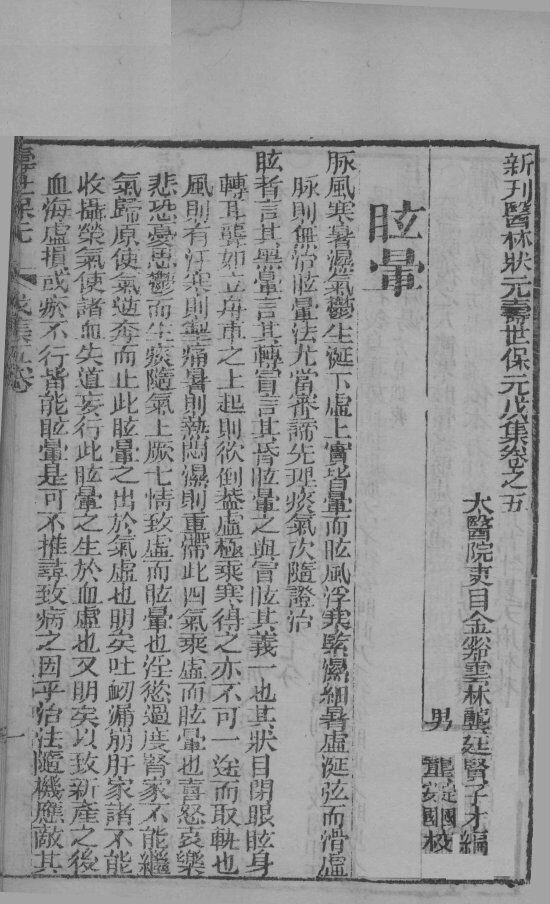 新刊醫林狀元壽世保元戊集卷之五
太醫院吏目金谿雲林龔廷賢子才編
男
龔定國
安國校
眩暈
脉風寒暑濕氣鬱生涎下虛上實皆暈而眩風浮寒緊濕細暑虛涎弦而滑虛
脉則無治眩暈法尤當審諦先理痰氣次隨證治
眩者言其黑暈言其轉冒言其昏眩暈之與冒眩其義一也其狀目閉眼眩身
轉耳聾如立舟車之上起則欲倒蓋虛極乘寒得之亦不可一途而取軌也
風則有汗寒則掣痛暑則熱悶濕則重滯此四氣乘虛而眩暈也喜怒哀樂
悲恐憂思鬱而生痰隨氣上厥七情致虛而眩暈也淫慾過度腎家不能繼
氣歸原使氣逆奔而止此眩暈之出於氣虛也明矣吐衂漏崩肝家諸不能
收攝榮氣使諸血失道妄行此眩暈之生於血虛也又明矣以致新產之後
血海虛損或瘀不行皆能眩暈是可不推尋致病之因乎治法隨機應敵其
壽世保元
戊集五卷
一